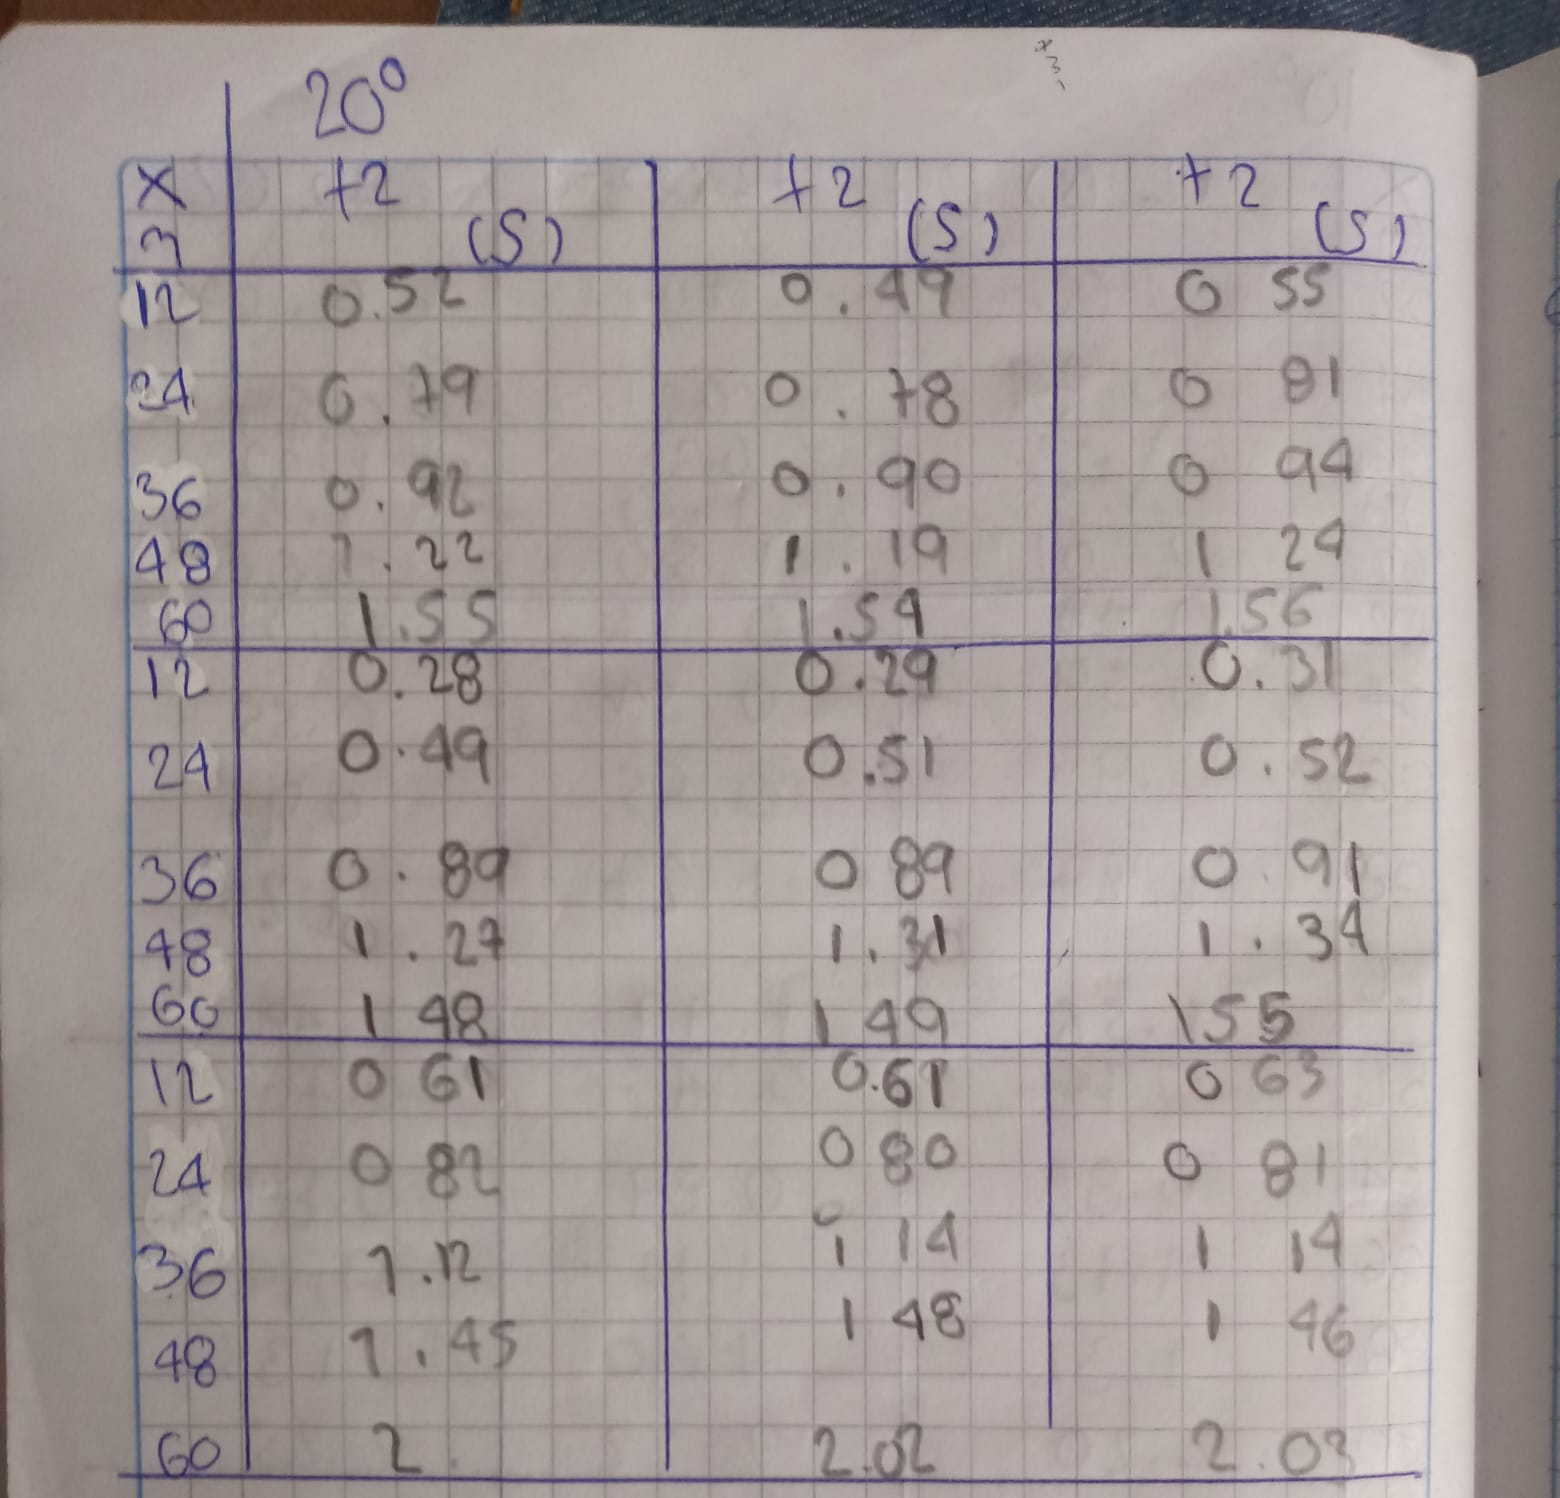 20°
X +2 +2 +2
3 (S) (S) (S)
12 0.52 0.49 0 55
24 0.79 0.78 0 81
36 0.92 0.90 0 94
48 1.22 1.19 1 24
60 1.55 1.54 1.56
12 0.28 0.29 0.31
24 0.49 0.51 0.52
36 0.89 0 89 0.91
48 1.27 1.31 1.34
60 1 48 1 49 155
12 0 61 0.61 0 63
24 0 82 0 80 0 81
36 1.12 1 14 1 14
48 1.45 1 48 1 46
60 2. 2.02 2.03